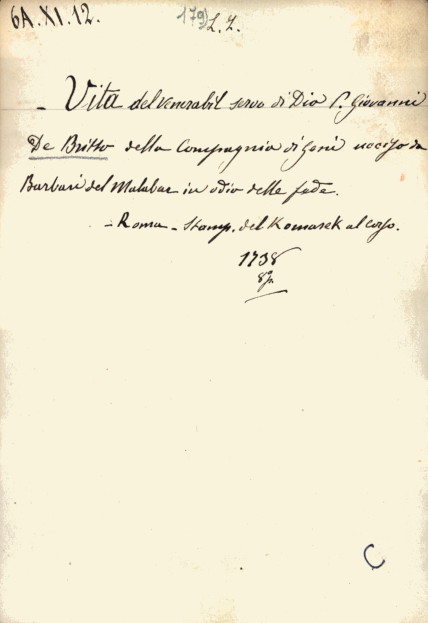 6A.XI.12.
179 L.Z.
- Vita del venerabil servo di Dio P. Giovanni
De Britto della Compagnia di Gesù ucciso da
Barbari del Malabar in odio della fede.
- Roma - Stamp. del Komarek al Corso.
1738
8º
C